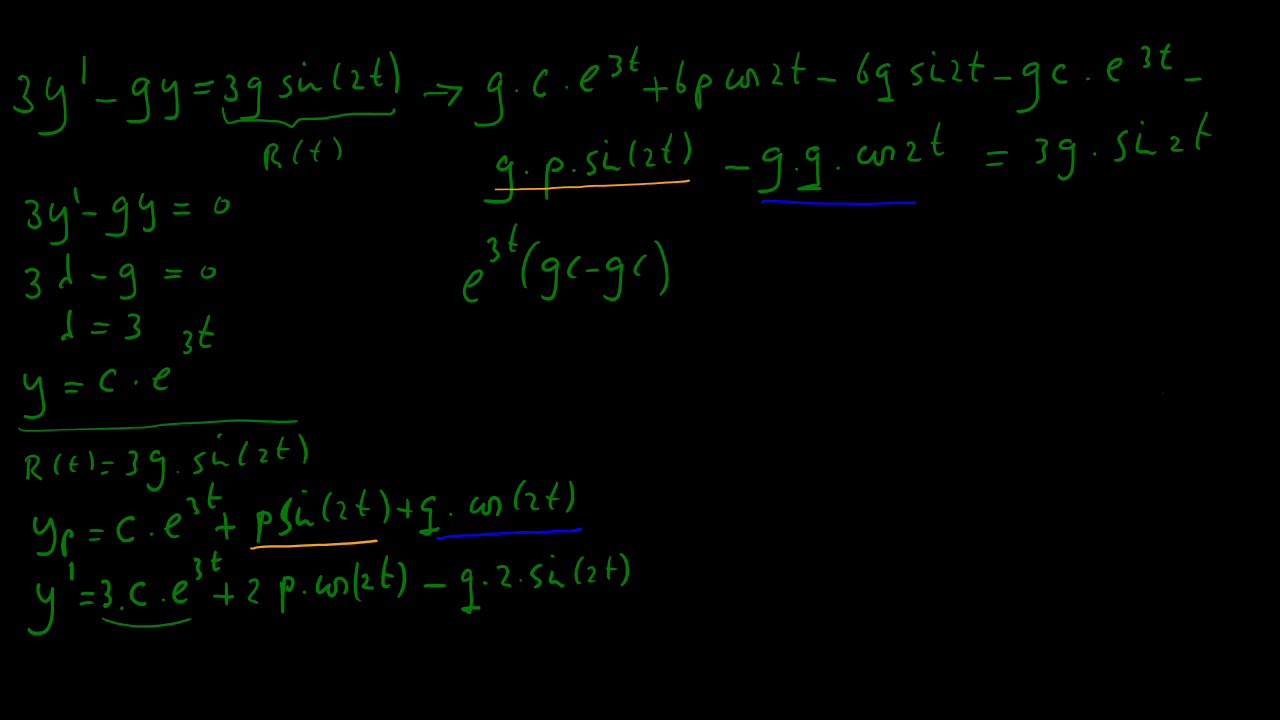 3y' - 9y = 39 sin(2t) → 9 · c · e^3t + 6p cos 2t - 6q sin 2t - 9c · e^3t -
R(t)
9 · p · sin(2t) - 9 · q · cos 2t = 39 · sin 2t
3y' - 9y = 0
e^3t (9c - 9c)
3λ - 9 = 0
λ = 3
y = c · e^3t
R(t) = 39 · sin(2t)
yp = c · e^3t + p sin(2t) + q · cos(2t)
y' = 3 · c · e^3t + 2p · cos(2t) - q · 2 · sin(2t)